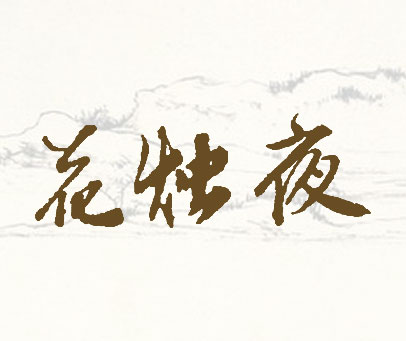 花烛夜